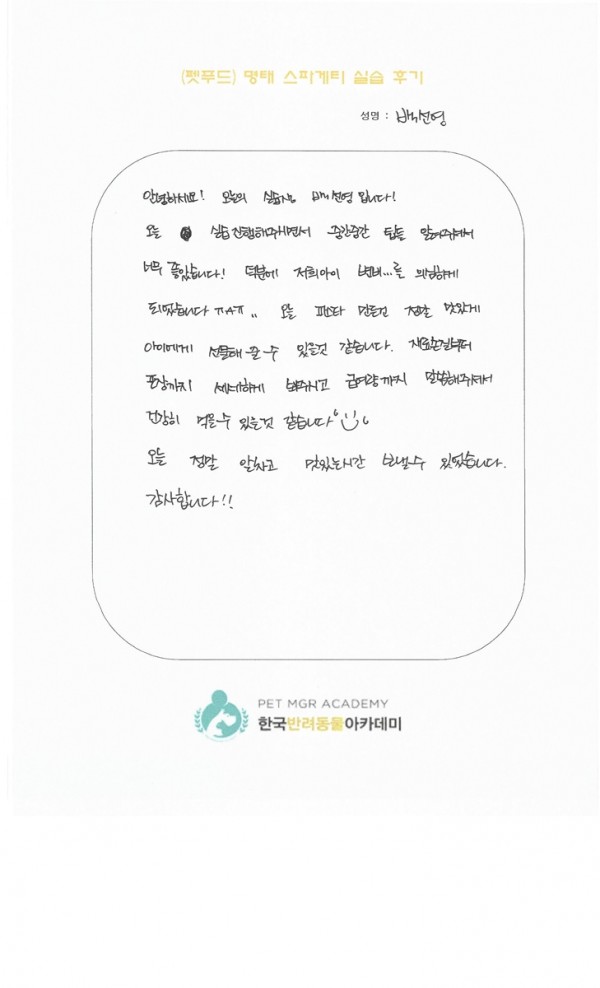 (펫푸드) 명태 스파게티 실습 후기
성명 : 박선영
안녕하세요! 오늘의 실습생 박선영 입니다!
오늘 실습 진행해주시면서 중간중간 팁들 알려주셔서
너무 좋았습니다! 덕분에 저희아이 변비...를 의심하게
되었습니다 ㅠㅅㅠ ,, 오늘 파스타 만든건 정말 맛있게
아이에게 선물해 줄 수 있을것 같습니다. 재료손질부터
포장까지 세세하게 봐주시고 급여량까지 말씀해주셔서
건강히 먹을수 있을것 같습니다
오늘 정말 알차고 맛있는시간 보낼수 있었습니다.
감사합니다!!
PET MGR ACADEMY
한국반려동물아카데미